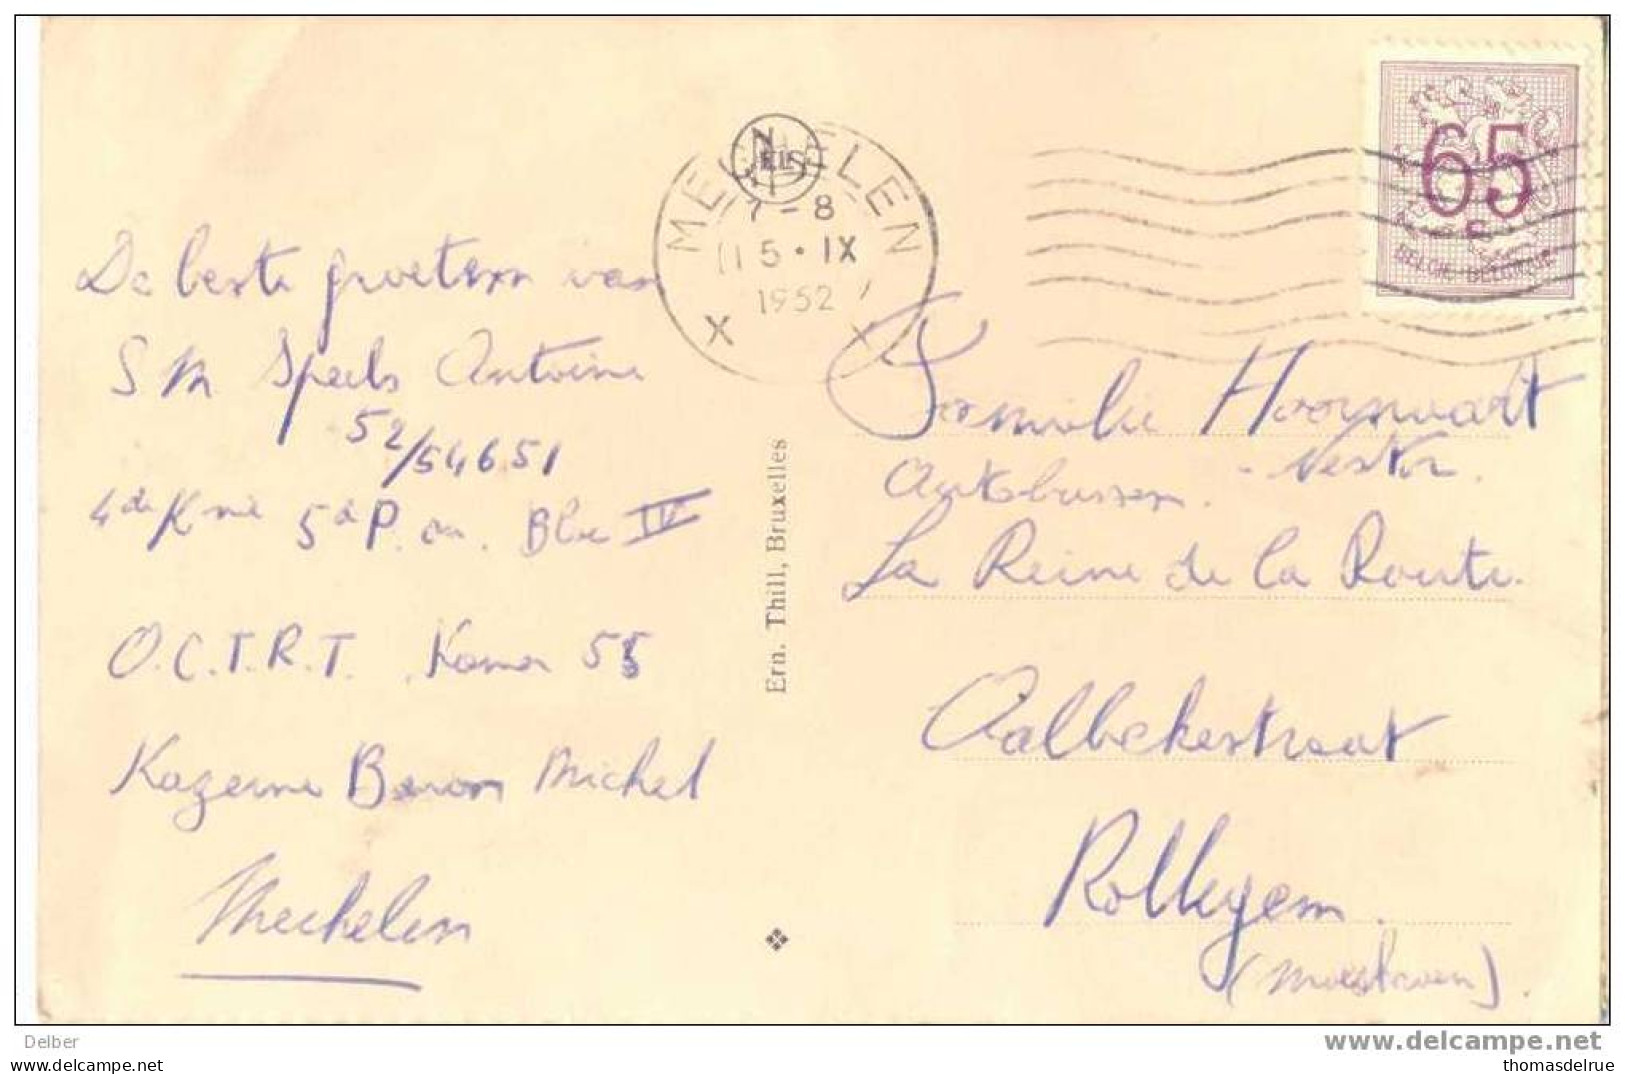 De beste groeten van
S M Speels Antoine
52/54651
4de Knie 5de P. on. Bloc IV
O.C.T.R.T. Kamer 55
Kazerne Baron Michel
Mechelen
Ern. Thill, Bruxelles
NELS
MECHELEN
7-8
15·IX
1952
X X
65
BELGIE-BELGIQUE
Familie Hoornaert
Nestor.
Autobussen.
La Reine de la Route.
Aalbekestraat
Rollegem.
(Moeskroen).
Delber
www.delcampe.net
All reproduction forbidden/Reproduction interdite
thomasdelrue